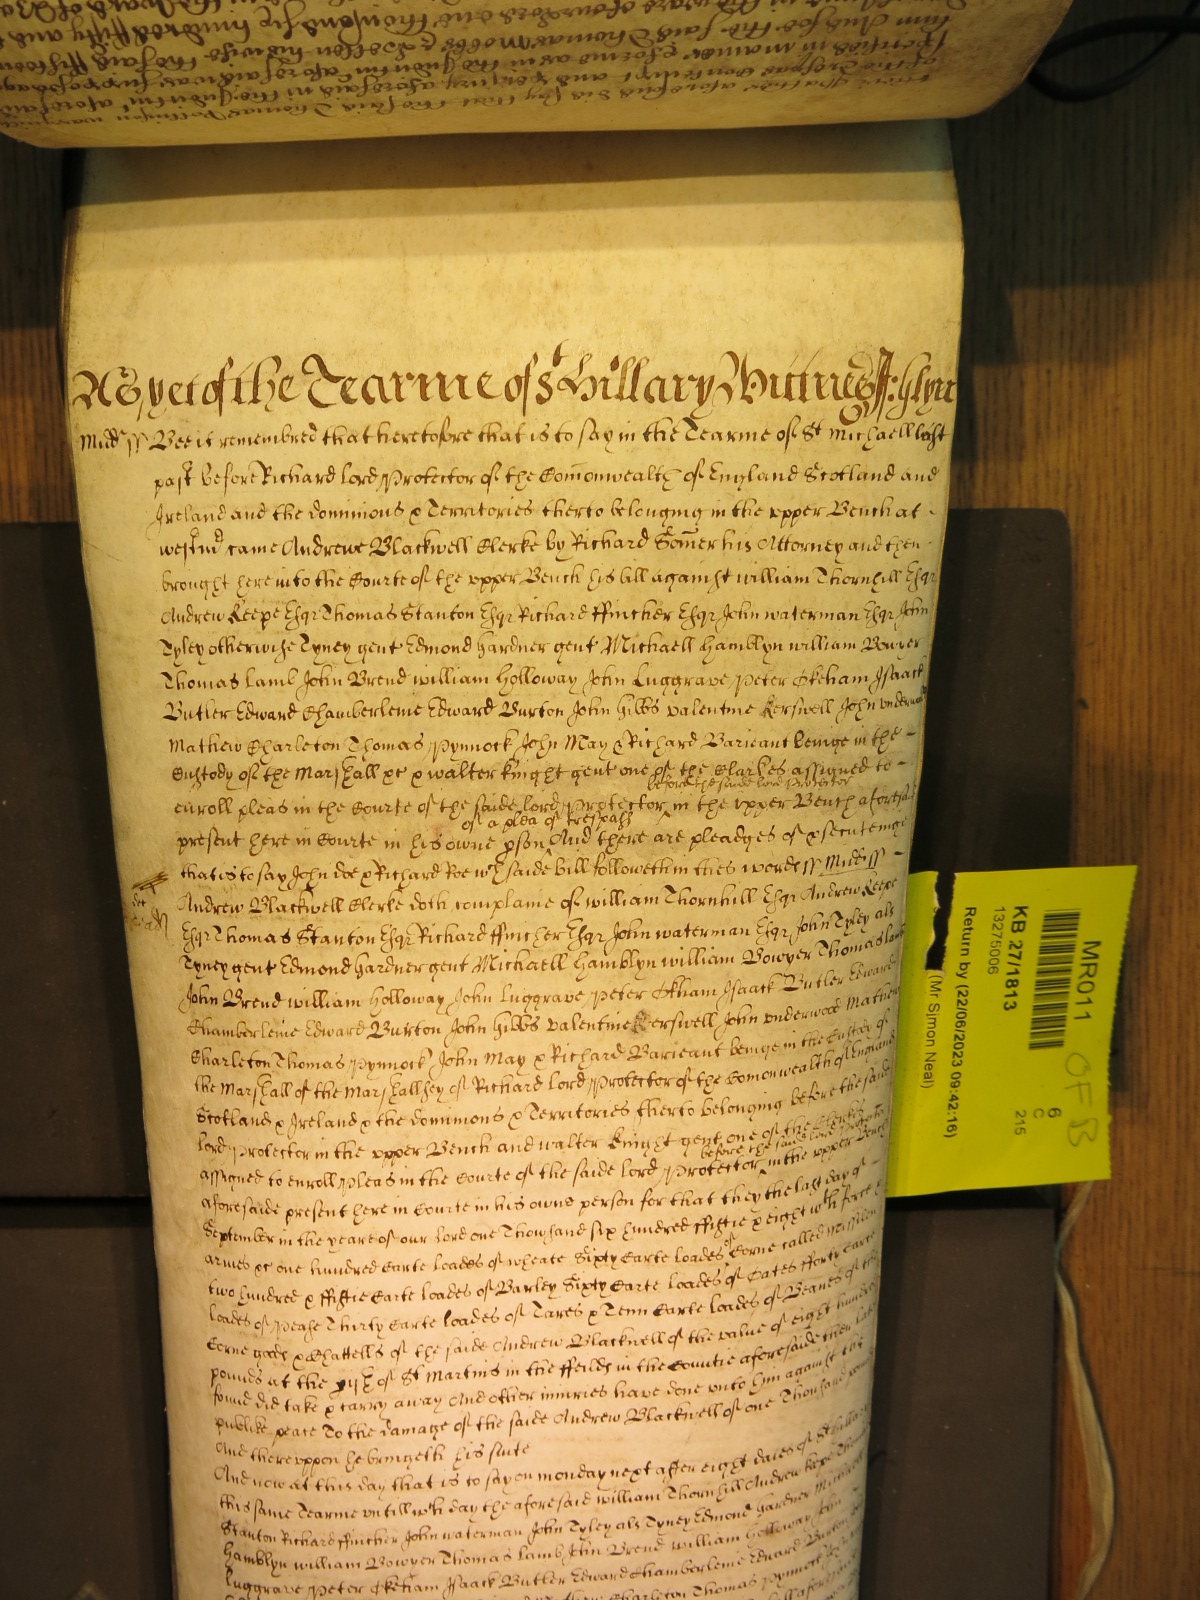 As yet of the Tearme of St Hillary Witnes Jo: Glynn
Midd ss Bee it remembred that heretofore that is to say in the Tearme of St Michaell last
past before Richard Lord Protector of the Comonwealth of England Scotland and
Ireland and the dominions & Territories therto belonging in the upper Bench at
westmr came Andrewe Blackwell Clerke by Richard Somer his Attorney and then
brought here into the Courte of the upper Bench his bill against william Thornhill Esqr
Andrew Keepe Esqr Thomas Stanton Esqr Richard ffincher Esqr John waterman Esqr John
Tyley otherwise Tyney gent Edmond Gardner gent Michaell Hamblyn william Bowyer
Thomas Lamb John Brend william Holloway John Luggrave Peter Okeham Isaack
Butler Edward Chamberleine Edward Burton John Gibbs valentine Kerswell John underwood
Mathew Charleton Thomas Pynnock John May & Richard Barieant beinge in the
Custody of the Marshall &c & walter Knight gent one of the Clarkes assigned to
before the saide Lord Protector
enroll pleas in the Courte of the saide Lord Protector in the upper Bench aforesaid
of a plea of trespass
present here in Courte in his owne pson And there are pleadges of psecuteinge
that is to say John doe & Richard Roe wch saide bill followeth in thes words ss Midd ss
Andrew Blackwell Clerke doth complaine of william Thornhill Esqr Andrew Keepe
Esqr Thomas Stanton Esqr Richard ffincher Esqr John waterman Esqr John Tyley als
Tyney gent Edmond Gardner gent Michaell Hamblyn william Bowyer Thomas Lamb
John Brend william Holloway John Luggrave Peter Okham Isaack Butler Edward
Chamberleine Edward Burton John Gibbs valentine Kerswell John underwood Mathew
Charleton Thomas Pynnock John May & Richard Barieant beinge in the Custody of
the Marshall of the Marshallsey of Richard Lord Protector of the Comonwealth of England
Scotland & Ireland & the dominions & Territories therto belonging before the saide
Lord Protector in the upper Bench and walter Knight gent one of the Clerkes
before the saide Lord Protector
assigned to enroll Pleas in the Courte of the saide Lord Protector in the upper Bench
aforesaide present here in Courte in his owne person for that they the last day of
September in the yeare of our Lord one Thowsand six hundred ffiftie & eight wth force &
armes &c one hundred Carte Loades of wheate Sixty Carte Loades of Corne called
two hundred & ffiftie Carte Loades of Barley Sixty Carte Loades of Oates fforty Carte
Loades of Pease Thirty Carte Loades of Tares & Tenn Carte Loades of Beanes of the
Corne goods & Chattells of the saide Andrew Blackwell of the value of eight hundred
pounds at the pish of St Martins in the ffeilds in the Countie aforesaide then late
found did take & carry away And other iniuries have done unto him against the
publike peace To the damage of the saide Andrew Blackwell of one Thousand pounds
And thereuppon he bringeth his suite
And now at this day that is to say on monday next after eight daies of St Hillary
this same Tearme untill wch day the aforesaid william Thornhill Andrew Keepe Thomas
Stanton Richard ffincher John waterman John Tyley als Tyney Edmond Gardner Michaell
Hamblyn william Bowyer Thomas Lamb John Brend william Holloway John
Luggrave Peter Okeham Isaack Butler Edward Chamberleine Edward Burton
MR011
OFB
KB 27/1813
13275006
6
C
215
Return by (22/06/2023 09:42:16)
(Mr Simon Neal)